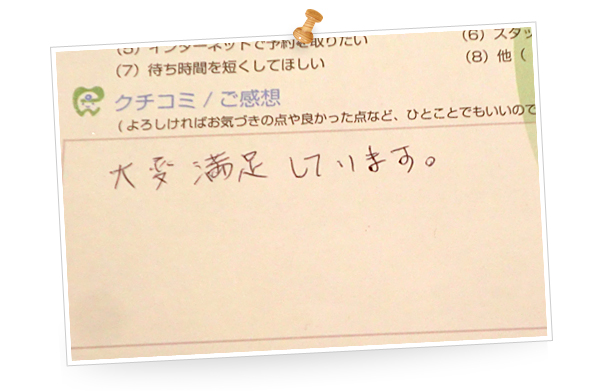 (5) インターネットで予約を取りたい
(6) スタッ
(7) 待ち時間を短くしてほしい
(8) 他(
クチコミ / ご感想
(よろしければお気づきの点や良かった点など、ひとことでもいいので
大変満足しています。